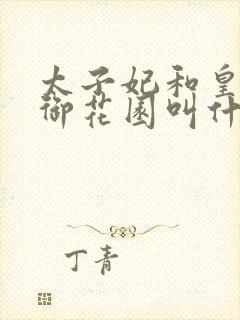 太子妃和皇
御花园叫什
丁青